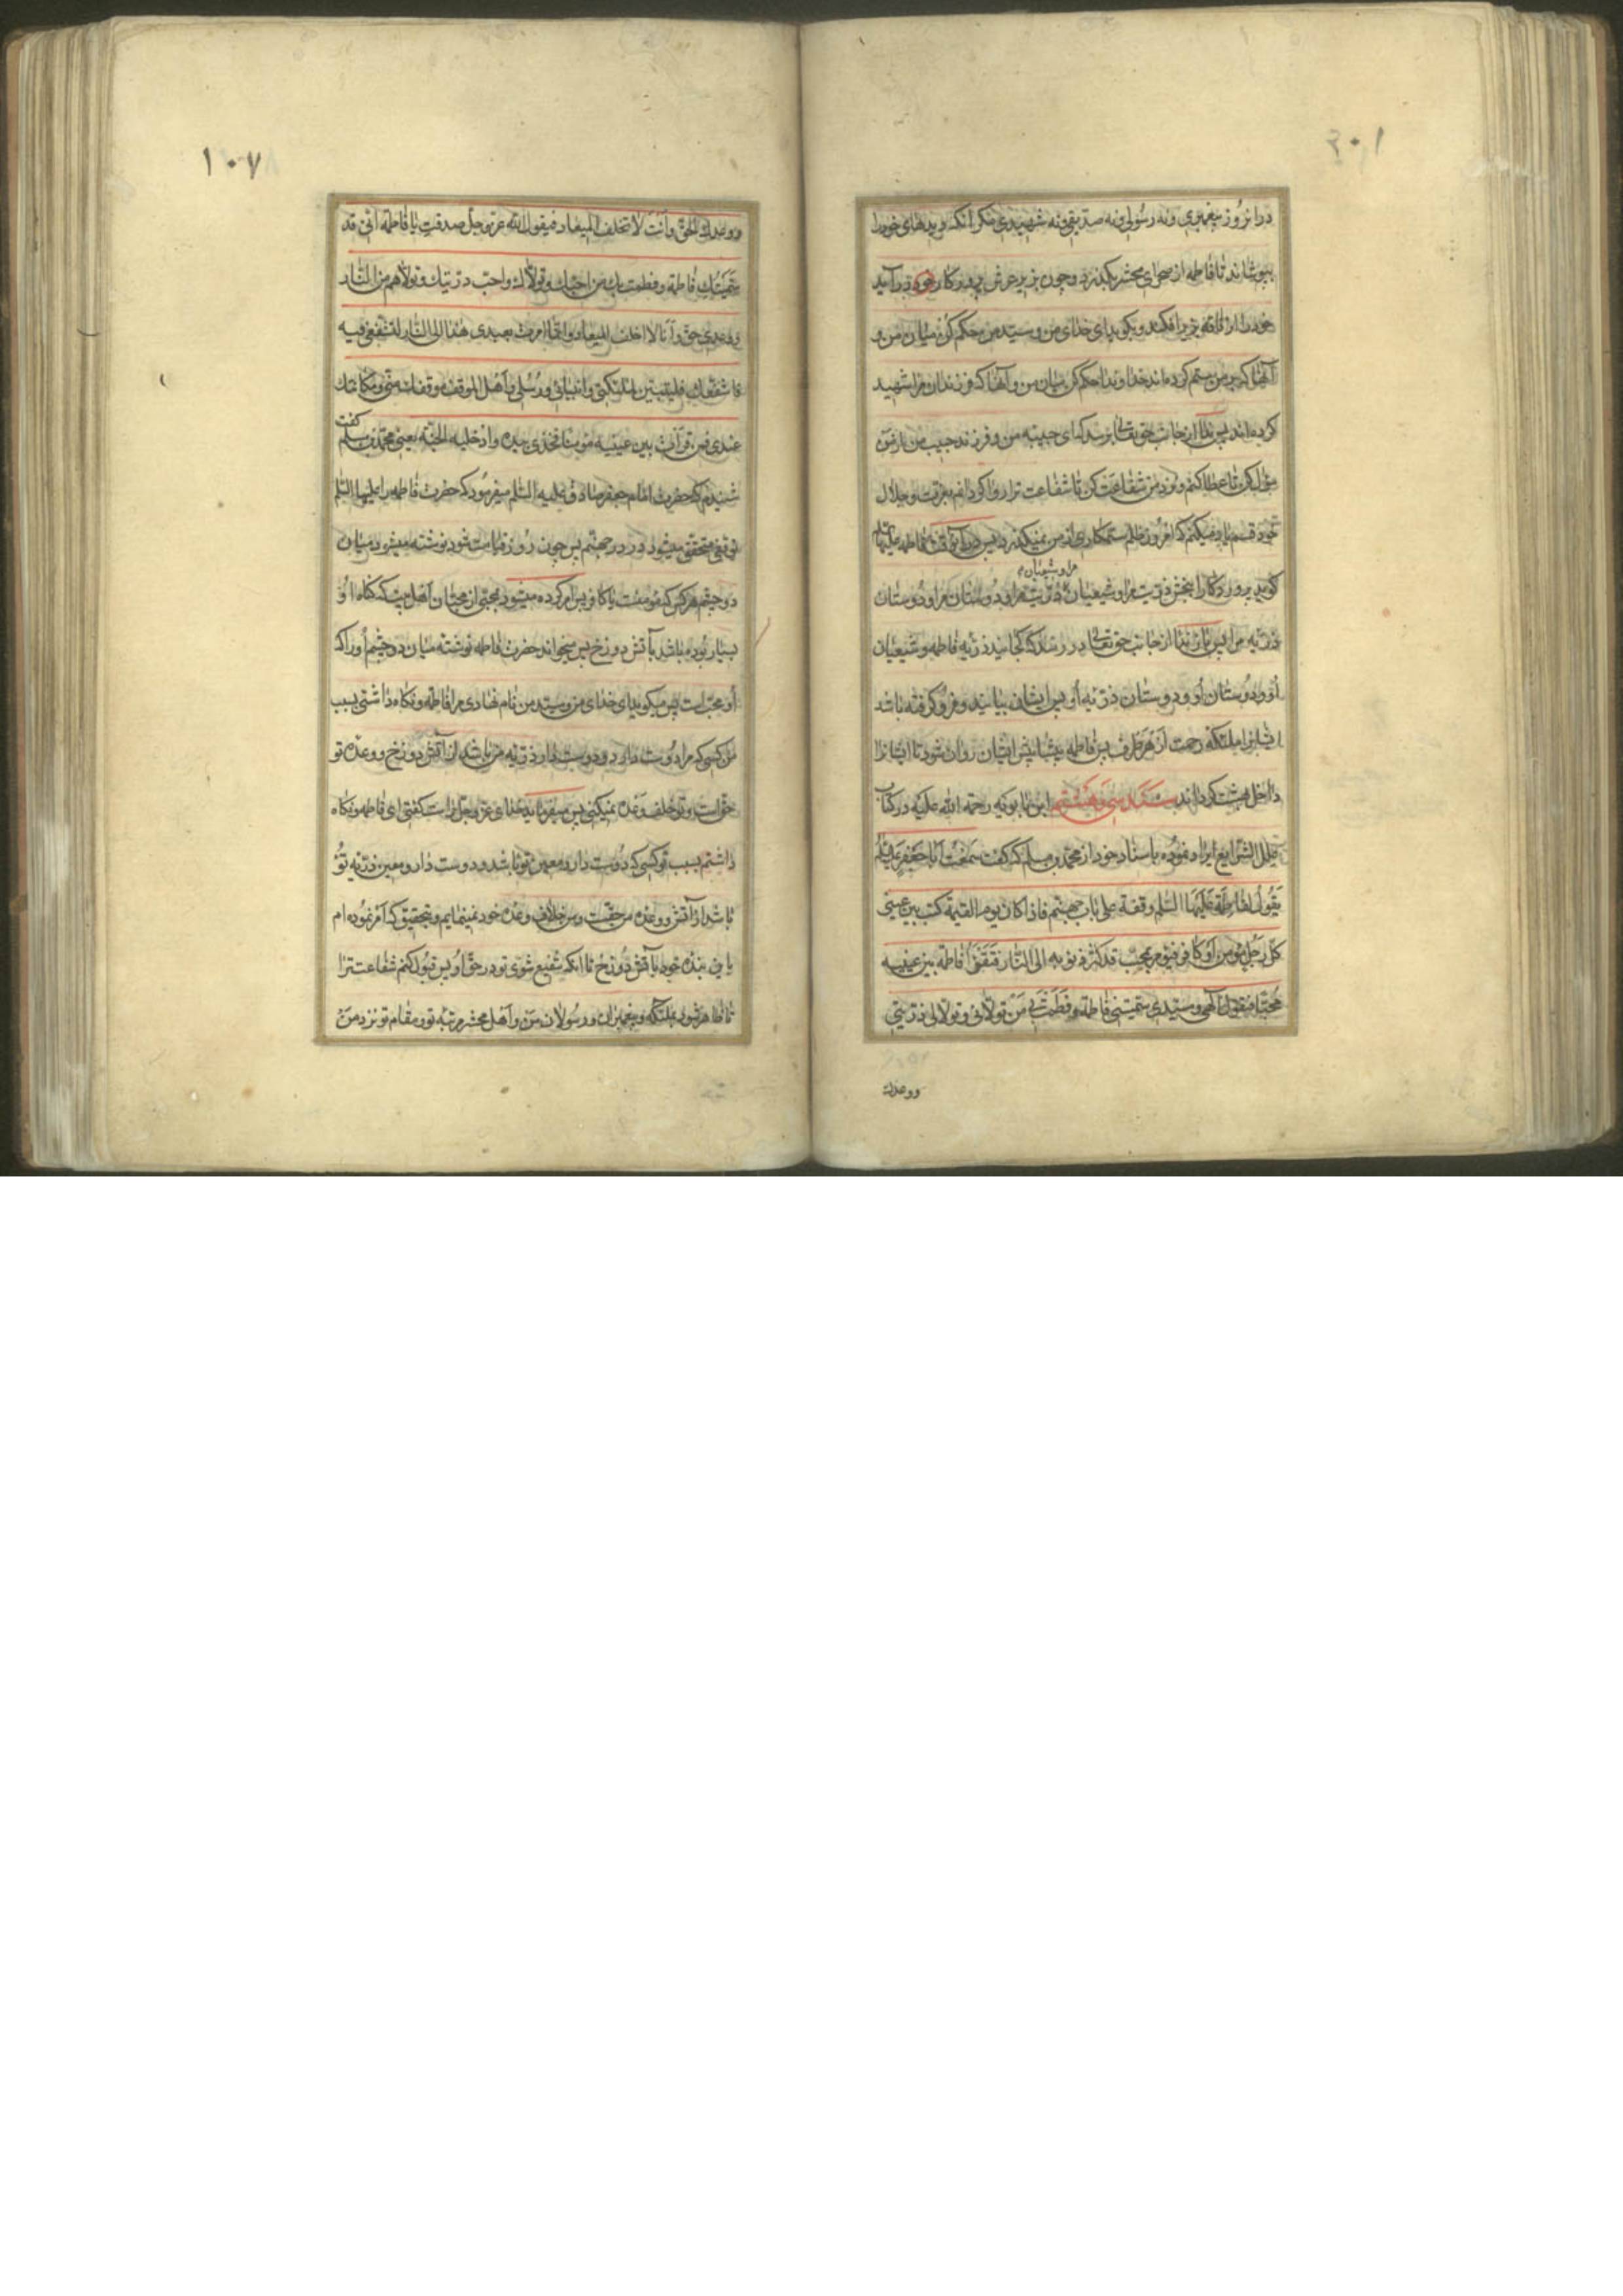 ۱۰۶
در انروز پیغمبری و نه رسولی و نه صدیقی و نه شهیدی مکر انکه دیدهای خود را
بپوشانند تا فاطمه از صحرای محشر بکذرد و چون بزیر عرش پروردکار خود درآید
خود را از ناقه بزیر افکند و بکوید ای خدای من و سید من حکم کن میان من و
آنها که بر من ستم کرده اند خداوندا حکم کن میان من و آنها که فرزندان مرا شهید
کرده اند پس ندا از جانب حق تعالی برسد که ای حبیبه من و فرزند حبیب من از من
سؤال کن تا عطا کنم و نزد من شفاعت کن تا شفاعت ترا روا کردانم بعزت و جلال
خود قسم یاد میکنم که امروز ظلم ستمکاری از من نمیکذرد پس در آنوقت فاطمه علیها
مرا و شیعیان
کوید پروردکارا ببخش ذریت مرا و شیعیان ذریت مرا و دوستان مرا و دوستان
ذریه مرا پس باز ندا از جانب حق تعالی در رسد که کجایند ذریه فاطمه و شیعیان
او و دوستان او و دوستان ذریه او پس ایشان بیایند و فرو کرفته باشد
ایشانرا ملئکه رحمت از هر طرف پس فاطمه پیشاپیش ایشان روان شود تا ایشانرا
داخل بهشت کرداند سند سی و هشتم ابن بابویه رحمة الله علیه در کتاب
علل الشرایع ایراد نموده باسناد خود از محمد بن مسلم که کفت سمعت ابا جعفر علیه السلام
یقول لفاطمة علیها السلم وقفة علی باب جهنم فاذا کان یوم القیمة کتب بین عینی
کل رجل مؤمن او کافر فیؤمر بمحب قد کثرت ذنوبه الی النار فتقرأ فاطمه بین عینیه
محبا فتقول الهی و سیدی سمیتنی فاطمة و فطمت بی من تولانی و تولی ذریتی
ووعدک
۱۰۷
ووعدک الحق وانت لا تخلف المیعاد فیقول الله عز و جل صدقت یا فاطمة انی قد
سمیتک فاطمة و فطمت بک من احبک و تولاک واحب ذریتک و تولاهم من النار
ووعدی حق و انا لا اخلف المیعاد وانما امرت بعبدی هذا الی النار لتشفعی فیه
فاشفعک فلیتبین لملئکتی وانبیائی ورسلی واهل الموقف موقفک منی و مکانتک
عندی فمن قرأت بین عینیه مؤمنا فخذی بیده وادخلیه الجنة یعنی محمد بن مسلم کفت
شنیدم که حضرت امام جعفر صادق علیه السلم میفرمود که حضرت فاطمه را علیها السلم
توقفی متحقق میشود در در جهنم پس چون روز قیامت شود نوشته میشود میان
دو چشم هرکس که مؤمنست یا کافر پس امر کرده میشود بمحبی از محبان اهل بیت که کناه او
بسیار بوده باشد بآتش دوزخ پس میخواند حضرت فاطمه نوشته میان دو چشم او را که
او محب است پس میکوید ای خدای من و سید من نام نهادی مرا فاطمه و نکاه داشتی بسبب
من کسی که مرا دوست دارد و دوست دار ذریه من باشد از آتش دوزخ و وعده تو
حق است و تو خلف وعده نمیکنی پس میفرماید خدای عز و جل راست کفتی ای فاطمه و نکاه
داشتم بسبب تو کسی که دوست دار و معین تو باشد و دوست دار و معین ذریه تو
باشد از آتش و وعده من حقست و من خلاف وعده خود نمینمایم و بتحقیق که امر نموده ام
باین بنده خود بآتش دوزخ تا انکه شفیع شوی تو در حق او پس قبول کنم شفاعت ترا
تا ظاهر شود بملئکه و پیغمبران و رسولان من و اهل محشر مرتبه تو و مقام تو نزد من